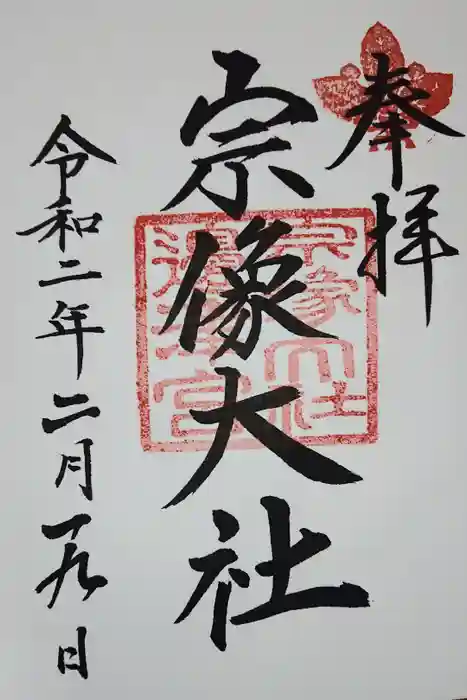 奉拝
宗像大社
宗像大社
邊津宮
令和二年二月一九日